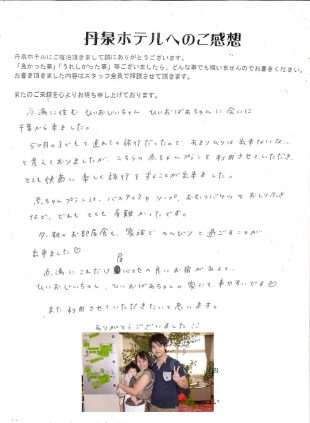 丹泉ホテルへのご感想
丹泉ホテルにご宿泊頂きまして誠にありがとうございます。
「良かった事」「うれしかった事」等ございましたら、どんな事でも構いませんのでお書きください。
お書き頂きました内容はスタッフ全員で拝読させて頂きます。
またのご来館を心よりお待ち申し上げております。
赤湯に住む ひいおじいちゃん、ひいおばあちゃんに会いに
千葉から来ました。
5ヶ月の子どもを連れての旅行だったので、あまりムリは出来ないな、
と考えておりましたが、こちらの赤ちゃんプランを利用させていただき、
とても快適に楽しく旅行をすることが出来ました。
赤ちゃんプランは、バスチェアやソープ、おむつバケツやおしりふき
など、どれもとても有難かったです。
夕・朝のお部屋食も、家族でのんびりと過ごすことが
出来ました♡
赤湯にこれだけ居心地の良いお宿があると、
ひいおじいちゃん、ひいおばあちゃんの家にも来やすいです♡
また利用させていただきたいと思います。
ありがとうございました!!